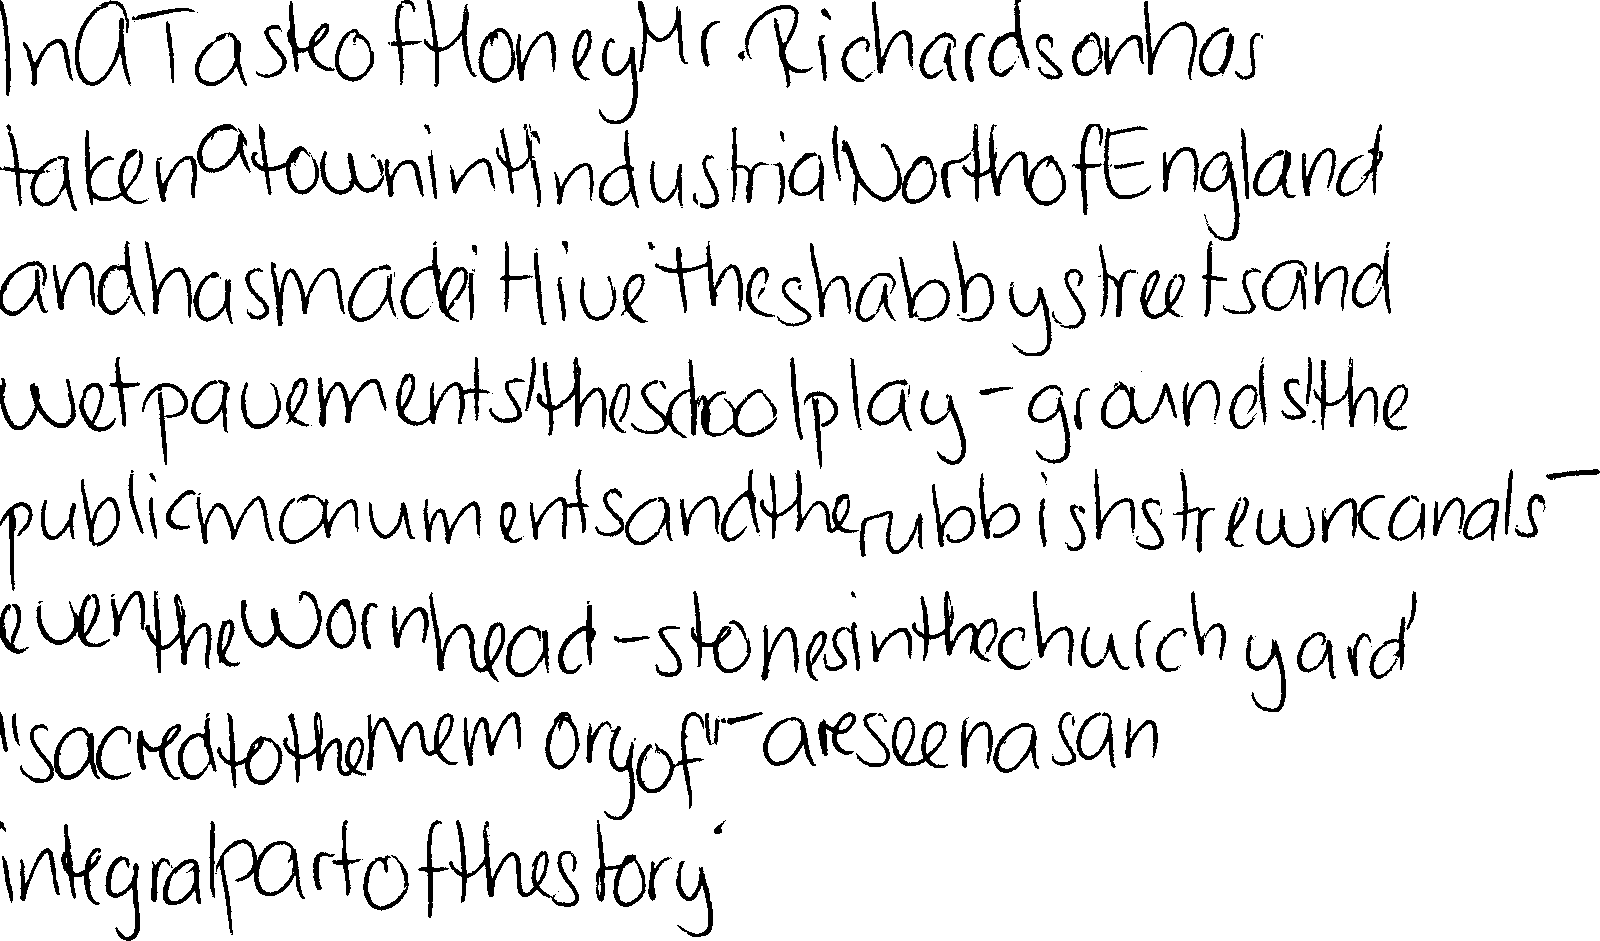 In A Taste of Honey Mr. Richardson has
taken a town in t' industrial North of England
and has made it live: the shabby streets and
wet pavements, the school play-grounds, the
public monuments and the rubbish strewn canals -
even the worn head-stones in the churchyard,
"sacred to the memory of" - are seen as an
integral part of the story.